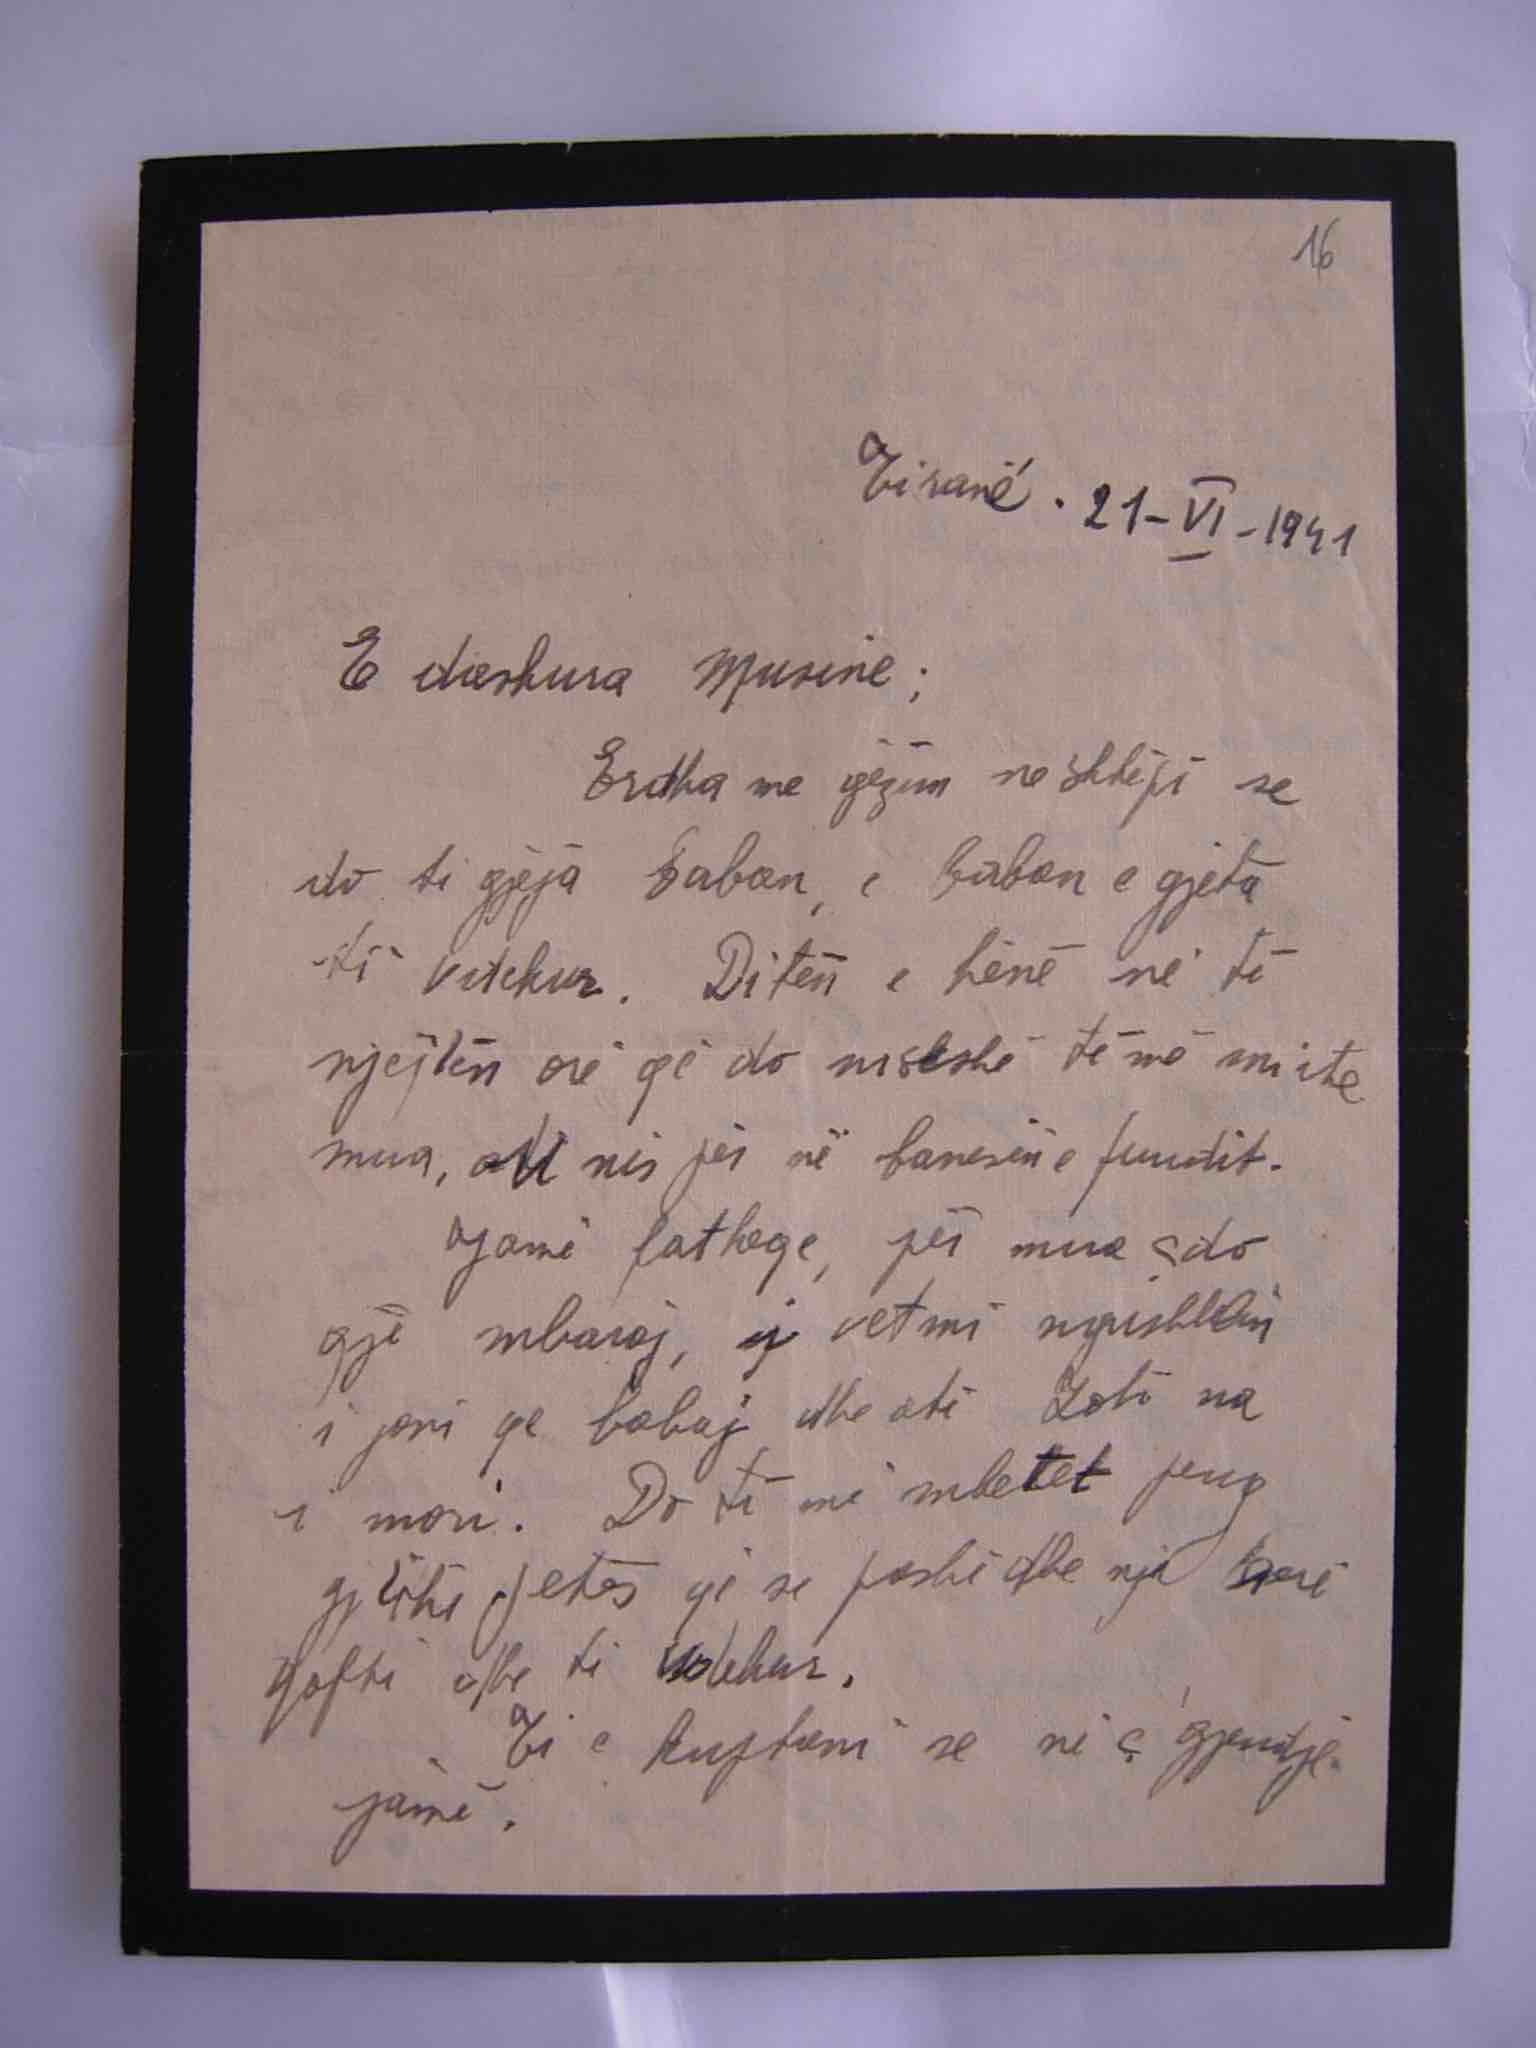 16
Tiranë. 21-VI-1941
E dashura Musine;
Erdha me gëzim ne shtëpi se
do ti gjëjã baban, e baban e gjeta
të vdekur. Ditën e hënë në të
njejtën orë që do niseshë të më miste
mua, ati nis për në banesën e fundit.
Qjamë fatkeqe, për mua çdo
gjë mbaroj, i vetmi ngushllim
i jemi qe babaj dhe atë Zoti na
i mori. Do të më mbetet peng
gjithë jetës që se pashë dhe një herë
qoftë dhe të vdekur.
Ti e kuptoni se në ç' gjendje
jamë.